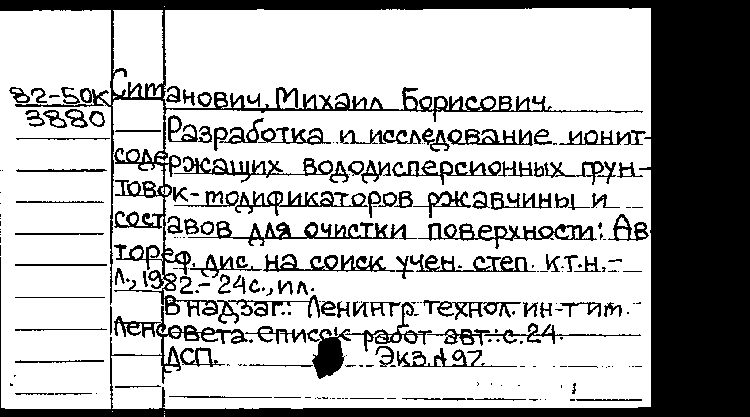 82-50К
3880
Ситанович, Михаил Борисович.
Разработка и исследование ионит-
содержащих вододисперсионных грун-
товок-модификаторов ржавчины и
составов для очистки поверхности: Ав-
тореф. дис. на соиск учен. степ. к.т.н.-
Л., 1982.- 24с., ил.
В надзаг.: Ленингр. технол. ин-т им.
Ленсовета. Список работ авт.: с.24.
ДСП. Экз.№97.